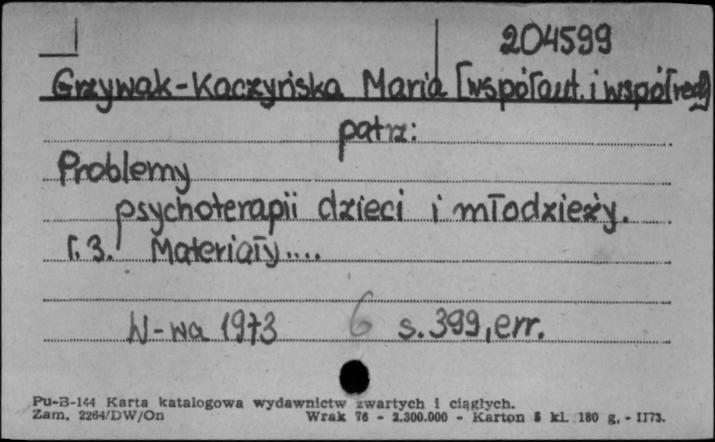 204599
Grzywak-Kaczyńska Maria [współaut. i współred]
patrz:
Problemy
psychoterapii dzieci i młodzieży.
T. 3. Materiały....
W-wa 1973 6 s. 399, err.
Pu-B-144 Karta katalogowa wydawnictw zwartych i ciągłych.
Zam. 2264/DW/On Wrak 76 - 2.300.000 - Karton 5 kl. 180 g. - II73.